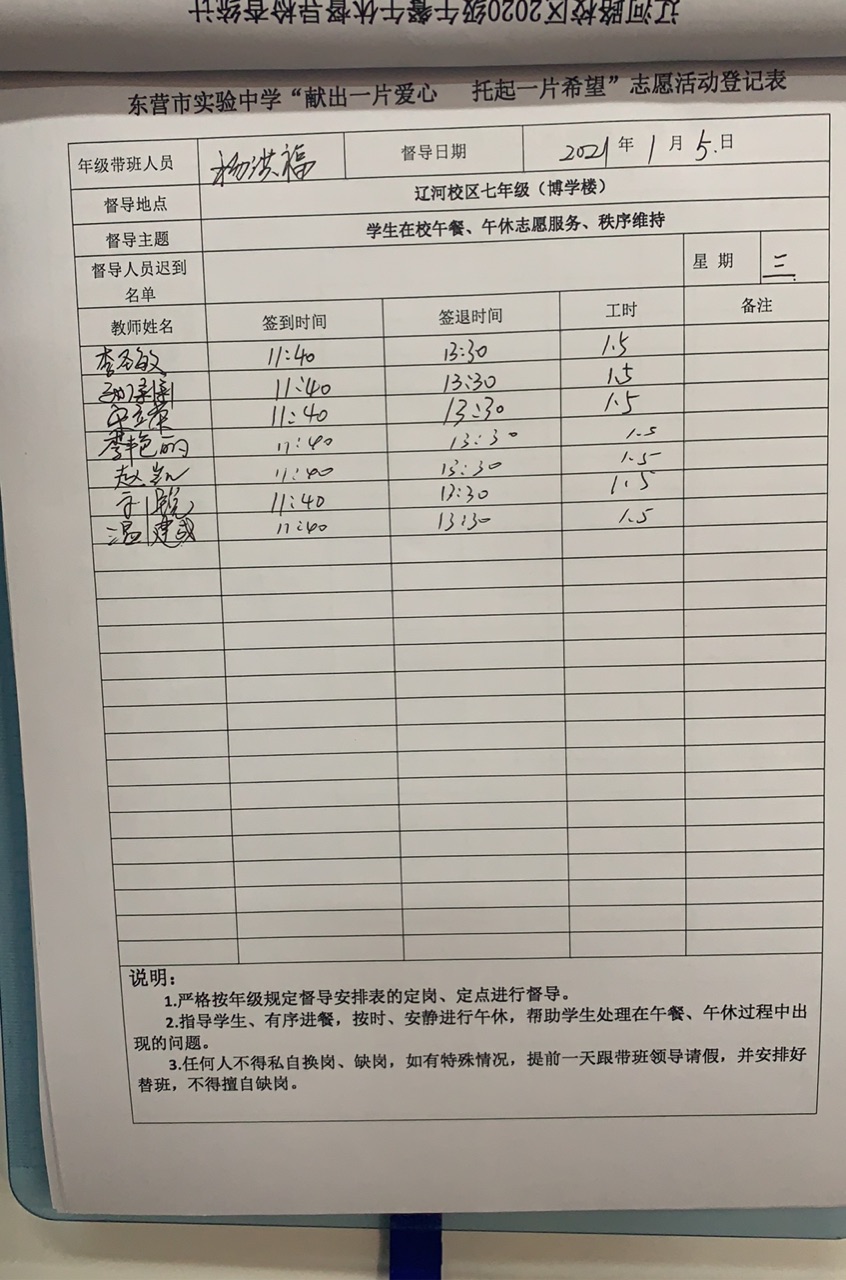 辽河路校区2020级午餐午休督导检查统计
东营市实验中学“献出一片爱心 托起一片希望”志愿活动登记表
年级带班人员 杨洪福 督导日期 2021年1月5日
督导地点 辽河校区七年级（博学楼）
督导主题 学生在校午餐、午休志愿服务、秩序维持
督导人员迟到名单 星 期 三
教师姓名 签到时间 签退时间 工时 备注
11:40 13:30 1.5
11:40 13:30 1.5
11:40 13:30 1.5
李艳丽 11:40 13:30 1.5
赵 11:40 13:30 1.5
11:40 13:30 1.5
温建成 11:40 13:30 1.5
说明：
1.严格按年级规定督导安排表的定岗、定点进行督导。
2.指导学生、有序进餐，按时、安静进行午休，帮助学生处理在午餐、午休过程中出
现的问题。
3.任何人不得私自换岗、缺岗，如有特殊情况，提前一天跟带班领导请假，并安排好
替班，不得擅自缺岗。